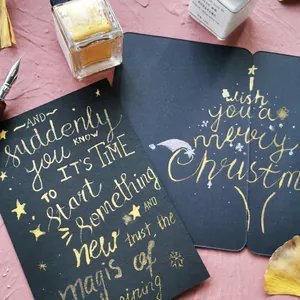 ~AND~
suddenly
you KNOW
IT'S TIME
TO
Start
Something
new AND
trust the
magis of
I
wish
you a
merry
Christm